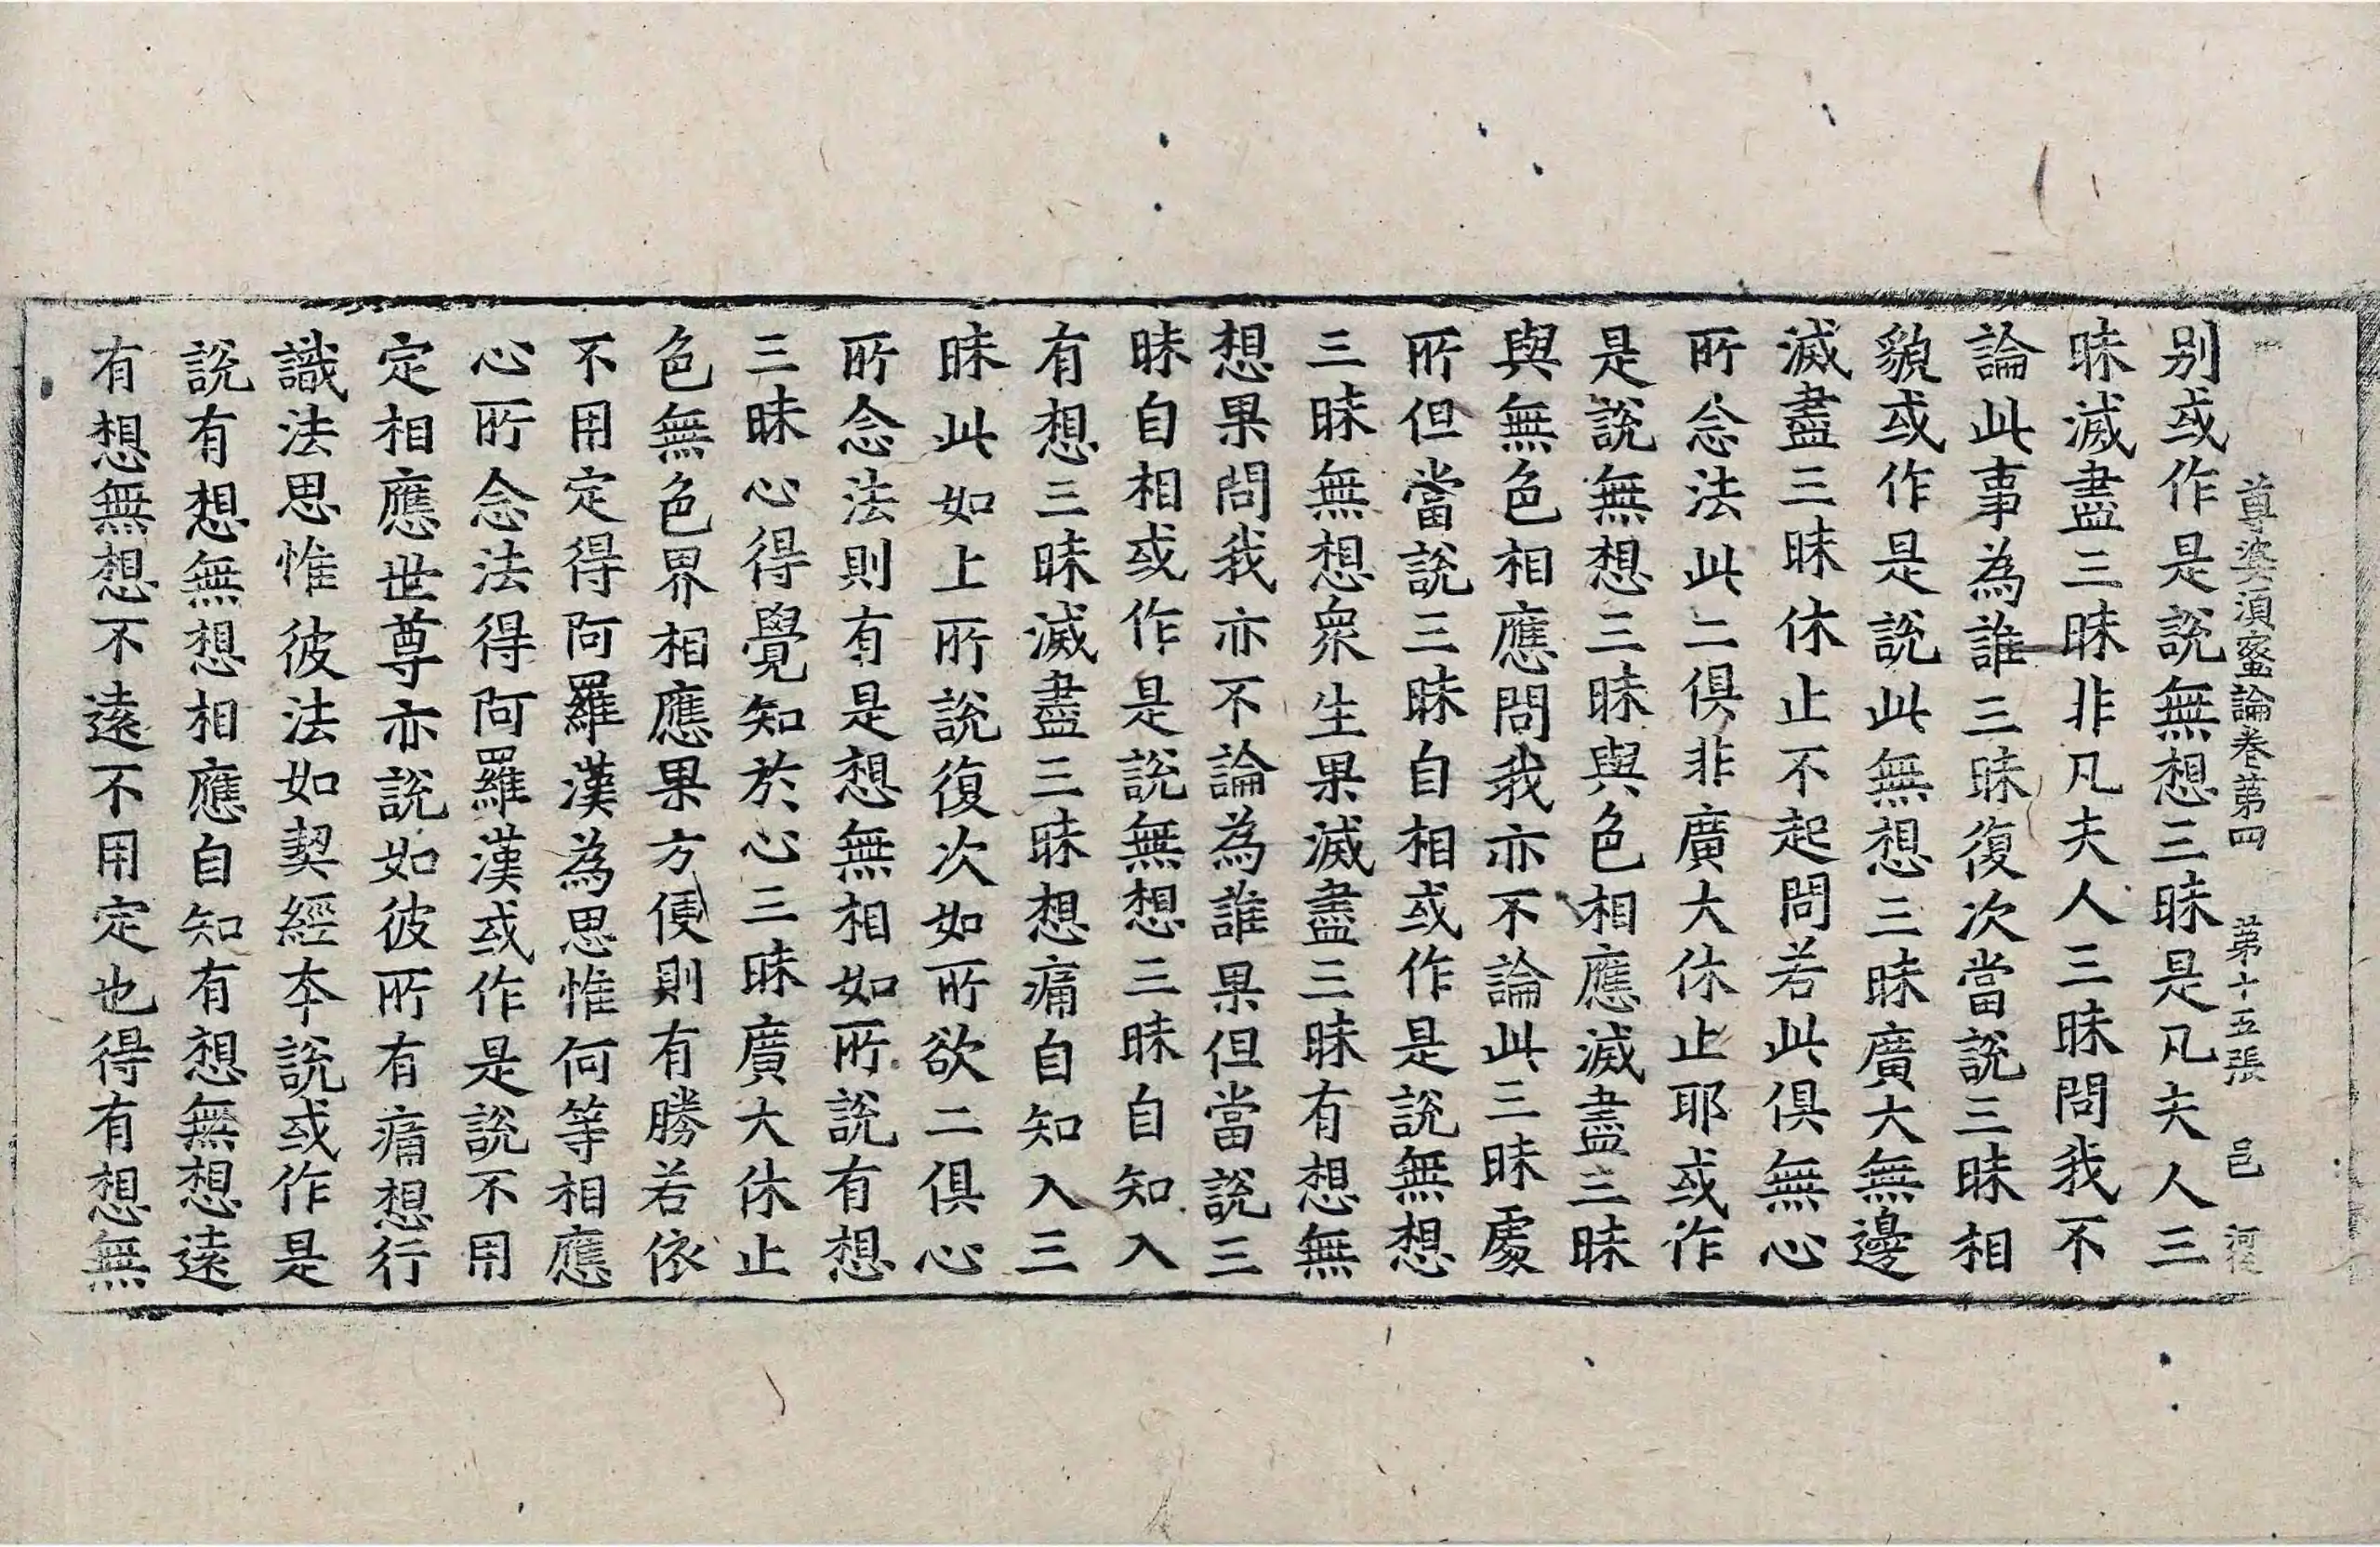 尊婆須蜜論卷第四　第十五張　邑
別或作是說無想三昧是凡夫人三
昧滅盡三昧非凡夫人三昧問我不
論此事為誰三昧復次當說三昧相
貌或作是說此無想三昧廣大無邊
滅盡三昧休止不起問若此俱無心
所念法此二俱非廣大休止耶或作
是說無想三昧與色相應滅盡三昧
與無色相應問我亦不論此三昧處
所但當說三昧自相或作是說無想
三昧無想眾生果滅盡三昧有想無
想果問我亦不論為誰果但當說三
昧自相或作是說無想三昧自知入
有想三昧滅盡三昧想痛自知入三
昧此如上所說復次如所欲二俱心
所念法則有是想無相如所說有想
三昧心得覺知於心三昧廣大休止
色無色界相應果方便則有勝若依
不用定得阿羅漢為思惟何等相應
心所念法得阿羅漢或作是說不用
定相應世尊亦說如彼所有痛想行
識法思惟彼法如契經本說或作是
說有想無想相應自知有想無想遠
有想無想不遠不用定也得有想無